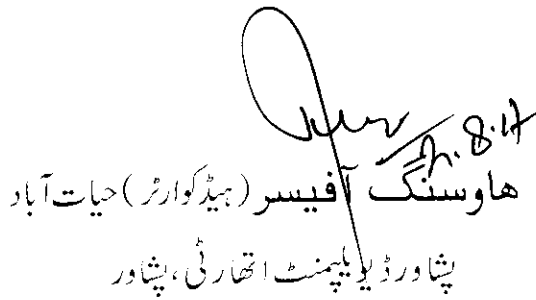 ھاوسنگ آفیسر (ہیڈکوارٹر) حیات آباد
پشاور ڈیویلپمنٹ اتھارٹی، پشاور